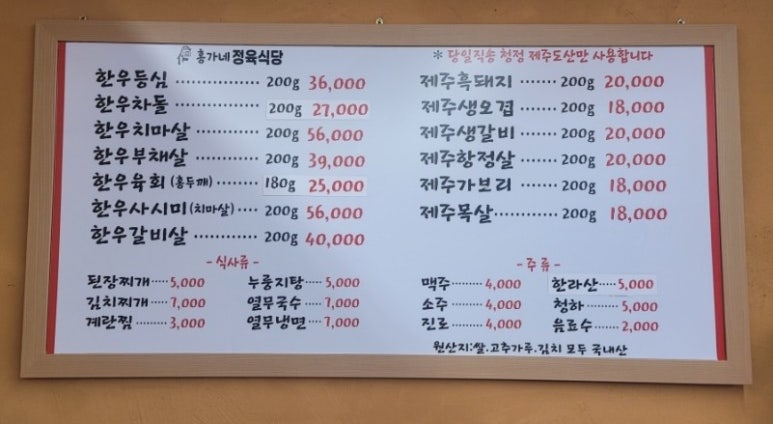 홍가네 정육식당
한우등심 ················ 200g 36,000
한우차돌 ················ 200g 27,000
한우치마살 ············ 200g 56,000
한우부채살 ············ 200g 39,000
한우육회 (홍두깨) ······· 180g 25,000
한우사시미 (치마살) ···· 200g 56,000
한우갈비살 ············ 200g 40,000
- 식사류 -
된장찌개 ···· 5,000 누룽지탕 ···· 5,000
김치찌개 ···· 7,000 열무국수 ···· 7,000
계란찜 ········ 3,000 열무냉면 ···· 7,000
* 당일직송 청정 제주도산만 사용합니다
제주흑돼지 ············ 200g 20,000
제주생오겹 ············ 200g 18,000
제주생갈비 ············ 200g 20,000
제주항정살 ············ 200g 20,000
제주가보리 ············ 200g 18,000
제주목살 ················ 200g 18,000
- 주 류 -
맥주 ······· 4,000 한라산 ···· 5,000
소주 ······· 4,000 청하 ······· 5,000
진로 ······· 4,000 음료수 ···· 2,000
원산지:쌀.고추가루.김치 모두 국내산